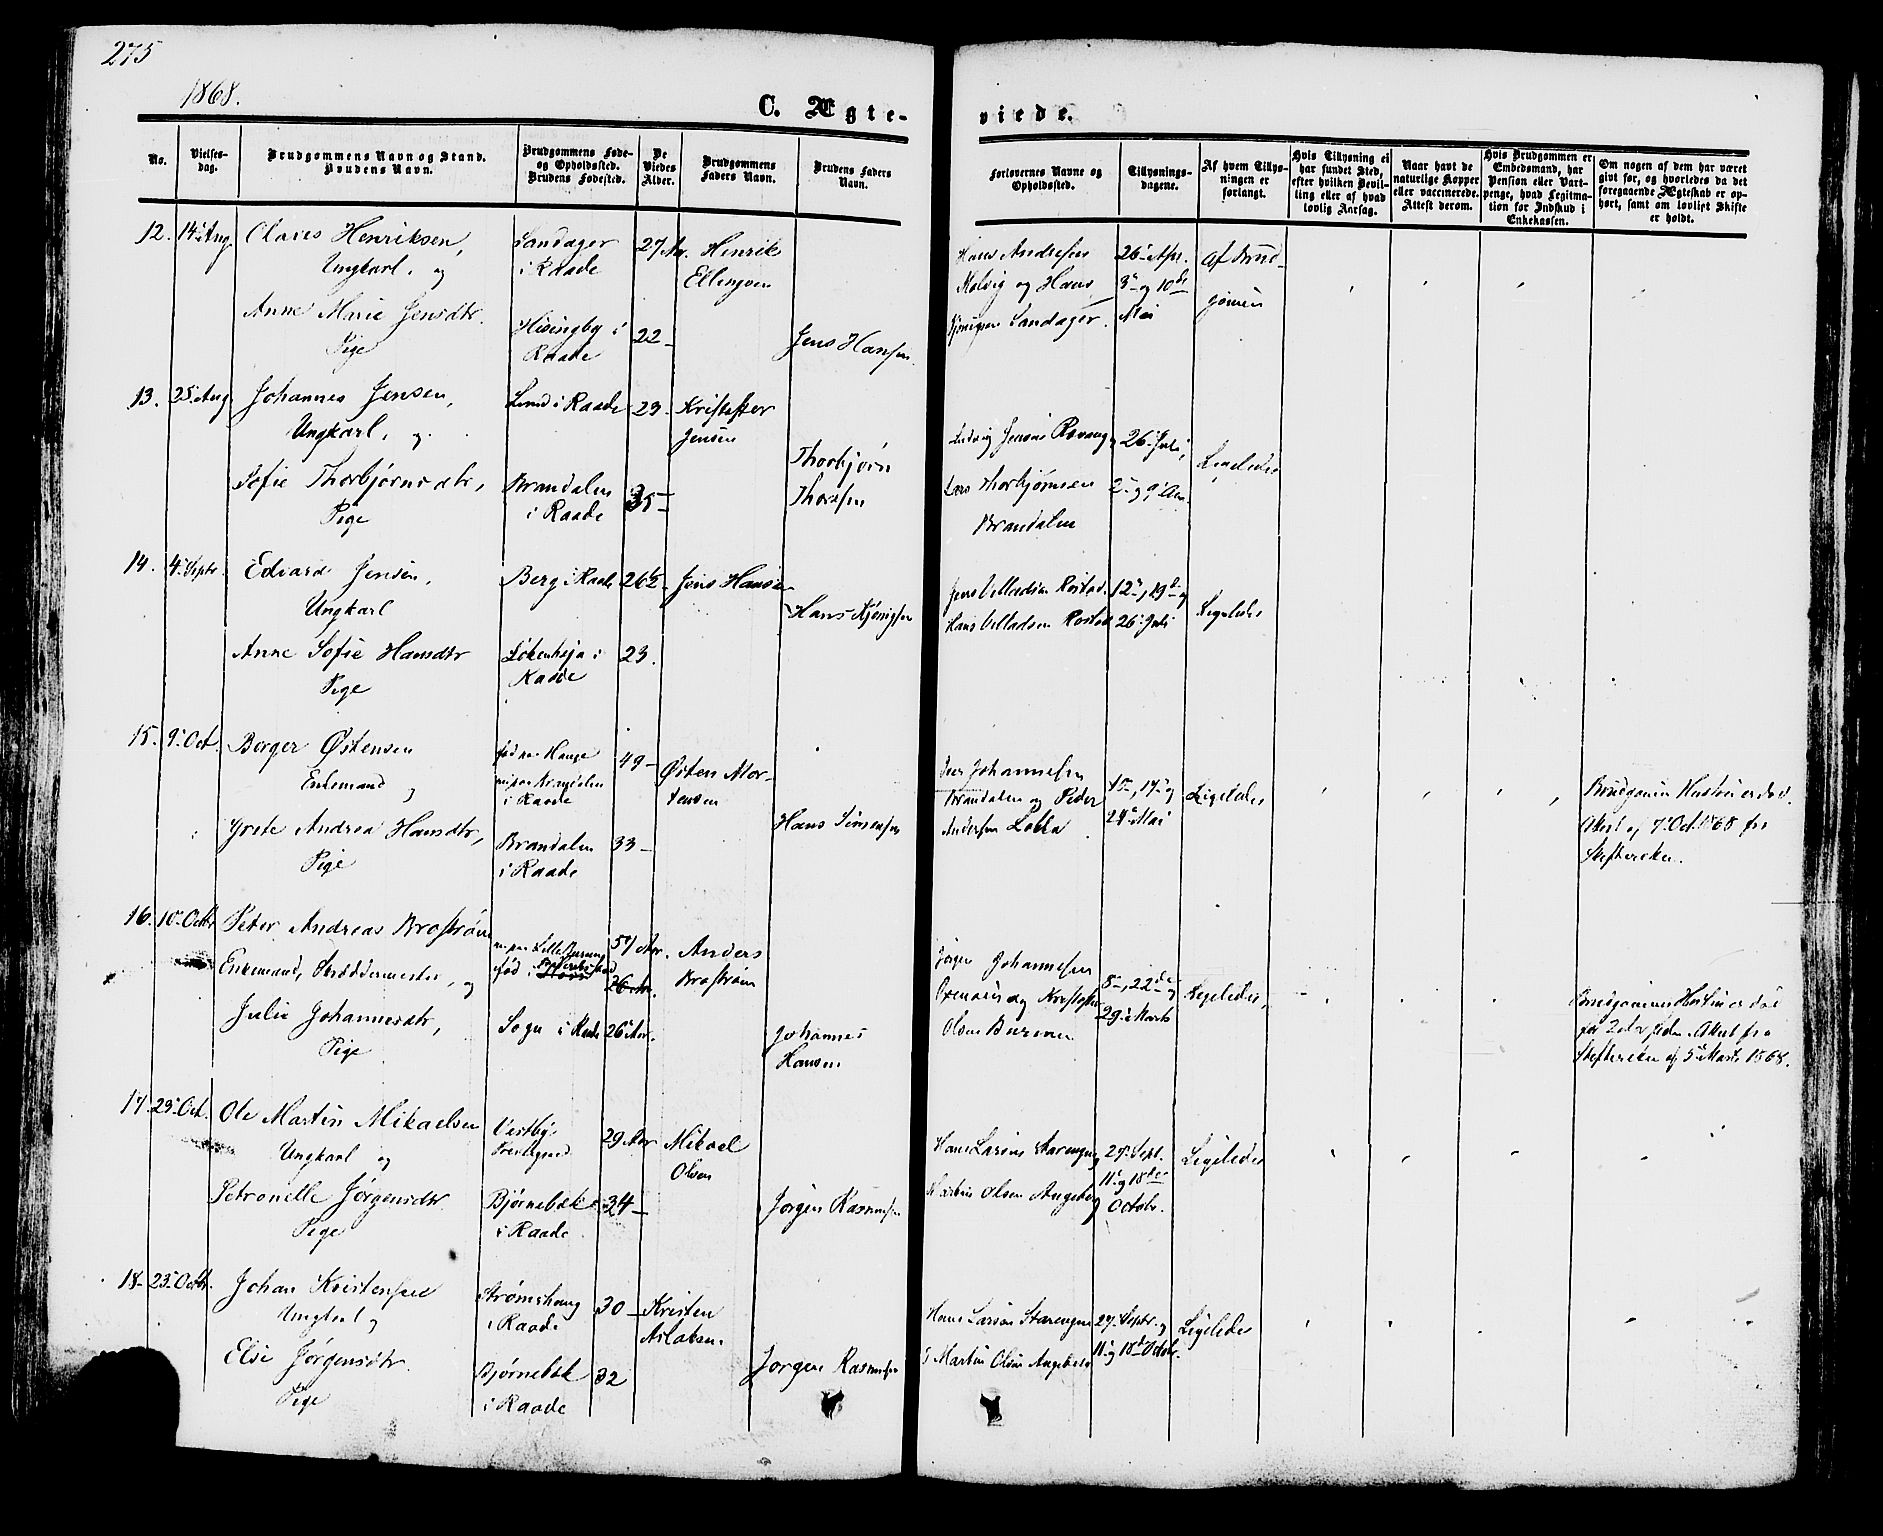 275
1868.
C. Ægte-
viede.
No.
Vielses-
dag.
Brudgommens Navn og Stand.
Brudens Navn.
Brudgommens Føde-
og Opholdssted.
Brudens Fødested.
De
Viedes
Alder.
Brudgommens
Faders Navn.
Brudens Faders
Navn.
Forlovernes Navne og
Opholdssted.
Tillysnings-
dagene.
Af hvem Tillys-
ningen er
forlangt.
Hvis Tillysning ei
har fundet Sted,
efter hvilken Bevil-
ling eller af hvad
lovlig Aarsag.
Naar havt de
naturlige Kopper
eller vaccinerede.
Attest derom.
Hvis Brudgommen er
Embedsmand, har
Pension eller Vart-
penge, hvad Legitima-
tion for Indskud i
Enkekassen.
Om nogen af dem har været
givt før, og hvorledes da det
foregaaende Ægteskab er op-
hørt, samt om lovligt Skifte
er holdt.
12. 14 Aug. Olaves Henriksen,
Ungkarl, og
Anne Marie Jensdtr.
Pige
Sandager
i Raade
Hisingby i
Raade
27 Aar.
22
Henrik
Ellingsen
Jens Hansen.
Hans Andresen
Kolvig og Hans
Sandager.
26 Apr.
3 og 10de
Mai
Af Brud-
gomen
13. 25 Aug. Johannes Jensen,
Ungkarl, og
Sofie Thorbjørnsdtr,
Pige
Lund i Raade
Brandalen
i Raade
23
35
Kristoffer
Jensen
Thorbjørn
Thorsen
Ludvig Jensen
Lars Thorbjørnsen
Brandalen
26 Juli,
2 og 9 Au.
Ligeledes
14. 4 Septr. Edvard Jensen,
Ungkarl
Anne Sofie Hansdtr
Pige
Berg i Raade
Løkenheja i
Raade
26½
23.
Jens Hansen
Hans
Jens Villadsen Rostad.
Hans Villadsen Rostad
12, 19de og
26 Juli
Ligeledes
15. 9 Oct. Borger Østensen
Enkemand og
Grete Andrea Hansdtr,
Pige
fød paa Hauge
i Raade
Brandalen
i Raade
49
33
Østen Mor-
tensen
Hans Simensen
Johannesen
Brandalen og Peder
Andersen Løkka
10, 17 og
24 Mai
Ligeledes
Brudgomen Hustru er død.
Attest af 7 Oct. 1868 fra
Skifteretten.
16. 10 Octbr Peter Andreas Brostrøm
Enkemand, Skræddermester, og
Julie Johannesdtr,
Pige
fød i
Sogn i Raade
57 Aar.
26 Aar.
26 Aar.
Anders
Brostrøm
Johannes
Hansen
Jørgen Johannesen
og Kristoffer
Olsen Burum
8, 22de og
29 Marts
Ligeledes,
Brudgommens Hustru er død
for 2 Aar siden. Attest fra
Skifteretten af 5 Marts 1868.
17. 23 Oct. Ole Martin Mikaelsen
Ungkarl og
Petronelle Jørgensdtr
Pige
Vestby
Præstegjeld
Bjørnebæk
i Raade
29 Aar
34
Mikael
Olsen
Jørgen Rasmussen
Hans Larsen Starengen
Martin Olsen Augeberg
27 Sept.
11 og 18de
Octobr.
Ligeledes
18 23 Octbr. Johan Kristensen
Ungkarl og
Elise Jørgensdtr.
Pige
Strømshaug
i Raade
Bjørnebæk
i Raade
30
32
Kristen
Aslaksen.
Jørgen Rasmussen
Hans Larsen Starengen
Martin Olsen Augeberg
27 Septr. og
11 og 18de Octobr.
Ligeledes